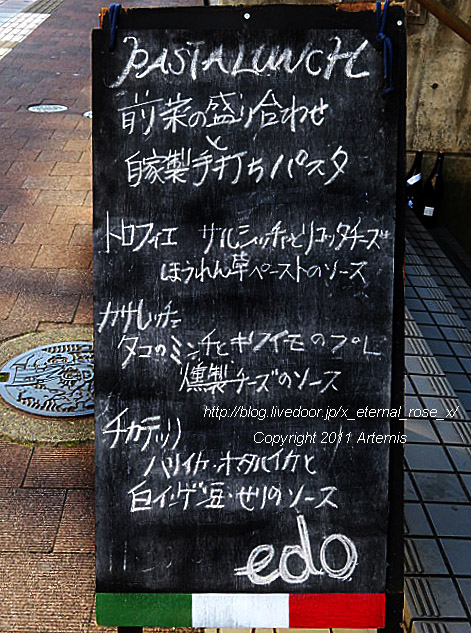 PASTA LUNCH
前菜の盛り合わせ
と
自家製手打ちパスタ
トロフィエ サルシッチャとリコッタチーズ
ほうれん草ペーストのソース
カサレッチェ
タコのミンチとキクイモのプレ
燻製チーズのソース
http://blog.livedoor.jp/x_eternal_rose_x/
Copyright 2011 Artemis
チカテッリ
ハリイカ・ホタルイカと
白インゲン豆・せりのソース
edo